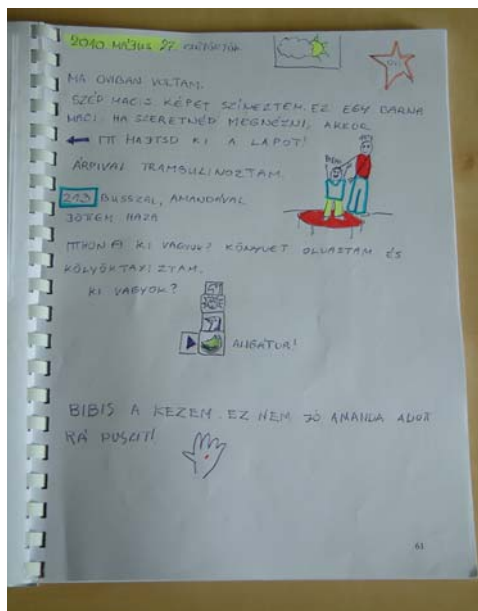 2010 MÁJUS 27. CSÜTÖRTÖK
MA OVIBAN VOLTAM.
SZÉP MACIS KÉPET SZÍNEZTEM. EZ EGY BARNA
MACI. HA SZERETNÉD MEGNÉZNI, AKKOR
ITT HAJTSD KI A LAPOT!
ÁRPIVAL TRAMBULINOZTAM.
213 BUSSZAL, AMANDÁVAL
JÖTTEM HAZA
ITTHON A KI VAGYOK? KÖNYVET OLVASTAM ÉS
KÖLYÖKTAXIZTAM.
KI VAGYOK?
ALIGÁTOR!
BIBIS A KEZEM. EZ NEM JÓ AMANDA ADOTT
RÁ PUSZIT!
61